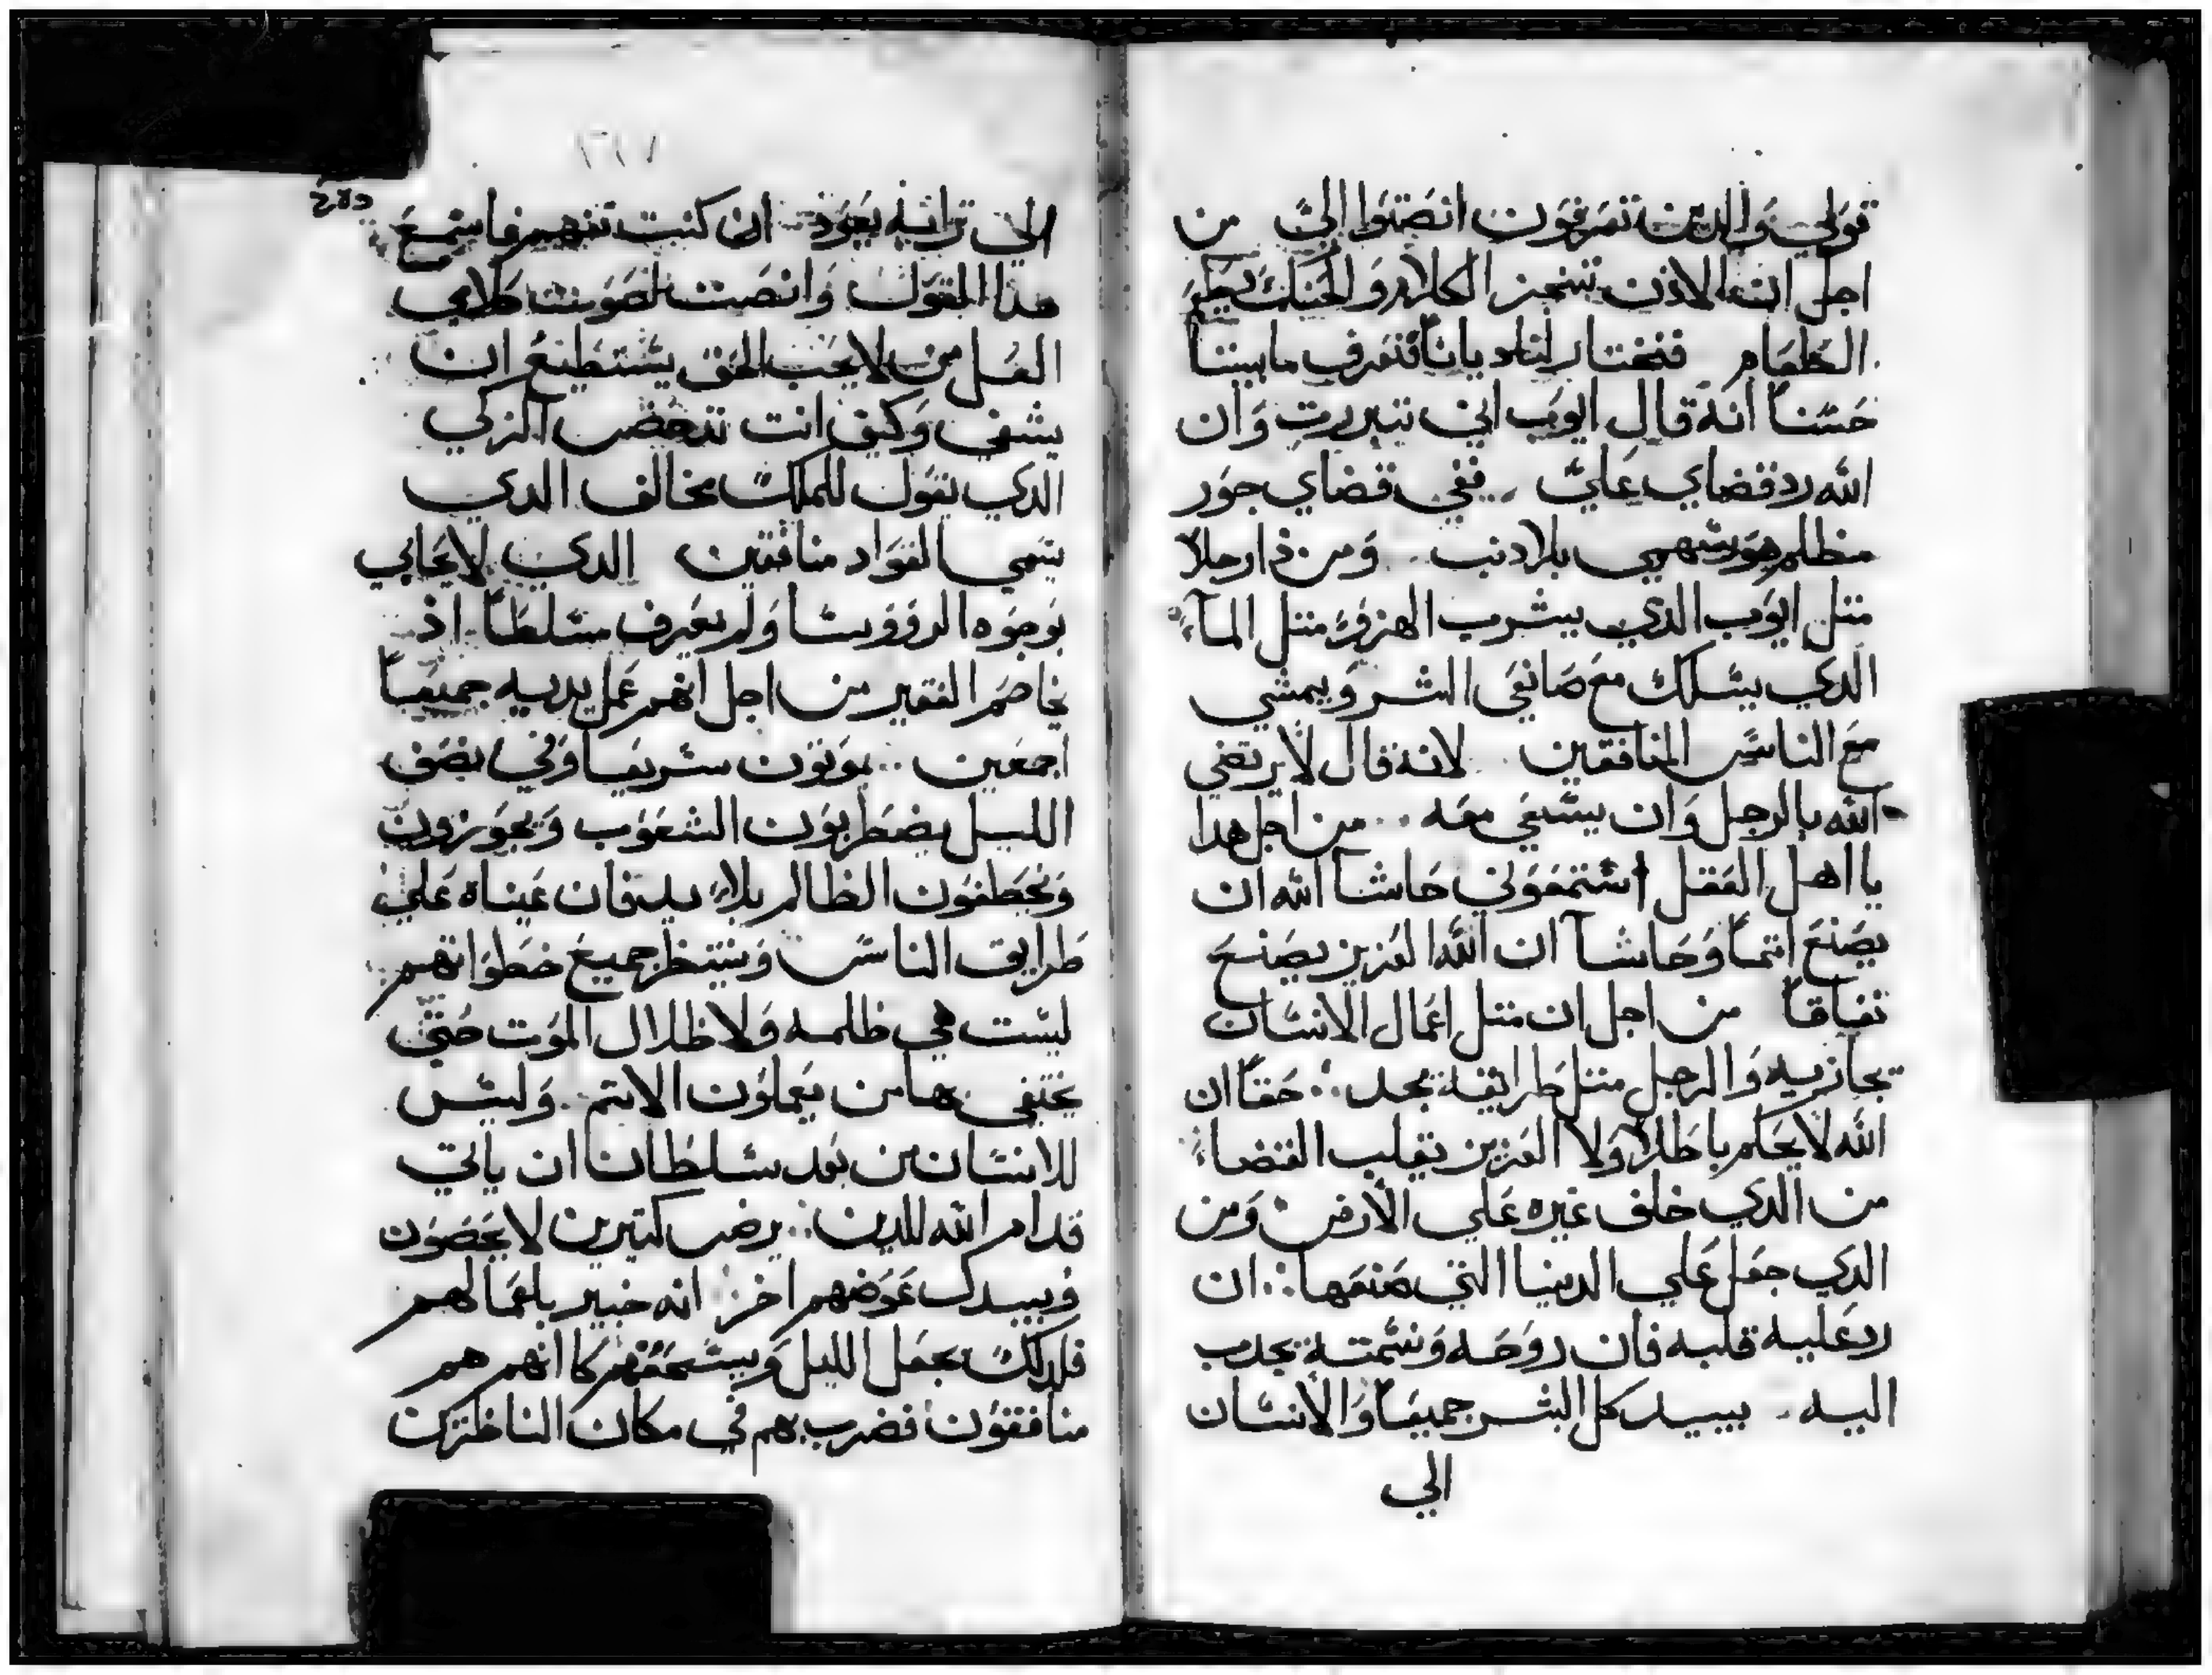 قولي والدين تعرفون انصتوا الئ من
اجل ان الادن تمتحن الكلام والحنك يطعم
الطعام فنختار لنا دياناً فنعرف ما بيننا
حسناً انه قال ايوب اني تبررت وان
الله رد قضاي عليّ ففي قضاي جور
مظلم هو سهمي بلا دنب ومن ذا رجلاً
متل ايوب الدي يشرب الهزؤ متل المآء
الدي يسلك مع صانعي الشر ويمشي
مع الناس المنافقين لانه قال لا يرتضي
الله بالرجل وان يسعي معه من اجل هدا
يا اهل العقل استمعوني حاشا الله ان
يصنع اتماً وحاشا ان الله العزيز يصنع
نفاقاً من اجل ان متل اعمال الانسان
يجازيه والرجل متل طرايقه يجد حقاً ان
الله لا يحكم باطلاً ولا العزيز يقلب القضاء
من الدي خلف غيره علي الارض ومن
الدي جعل علي الدنيا التي صنعها ان
رد عليه قلبه فان روحه ونسمته يجدب
اليه يبيد كل البشر جميعاً والانسان
الي
الي ترابه يعود ان كنت تفهم فاسمع
هدا القول وانصت لصوت كلامي
العل من لا يحب الحق يستطيع ان
يشفي وكيف انت تدحض الزكي
الدي يقول للملك مخالف الدي
يسمي القواد منافقين الدي لا يحابي
بوجوه الرووسا ولم يعرف مسلطاً اذ
يخاصم الفقير من اجل انهم عمل يديه جميعاً
اجمعين يموتون سريعاً وفي نصف
الليل يضطربون الشعوب ويجوزون
ويخطفون الظالم بلا يد فان عيناه علي
طرايق الناس وينتظر جميع خطواتهم
ليست هي ظلمه ولا ظلال الموت حتي
يختفي بها من يعملون الاتم وليس
للانسان من بعد سلطان ان ياتي
قدام الله للدين يرض كتيرين لا يحصون
ويبدل عوضهم اخر انه خبير باعمالهم
فلدلك يجعل الليل ويسحقهم كما انهم هم
منافقون فضرب بهم في مكان الناظرين